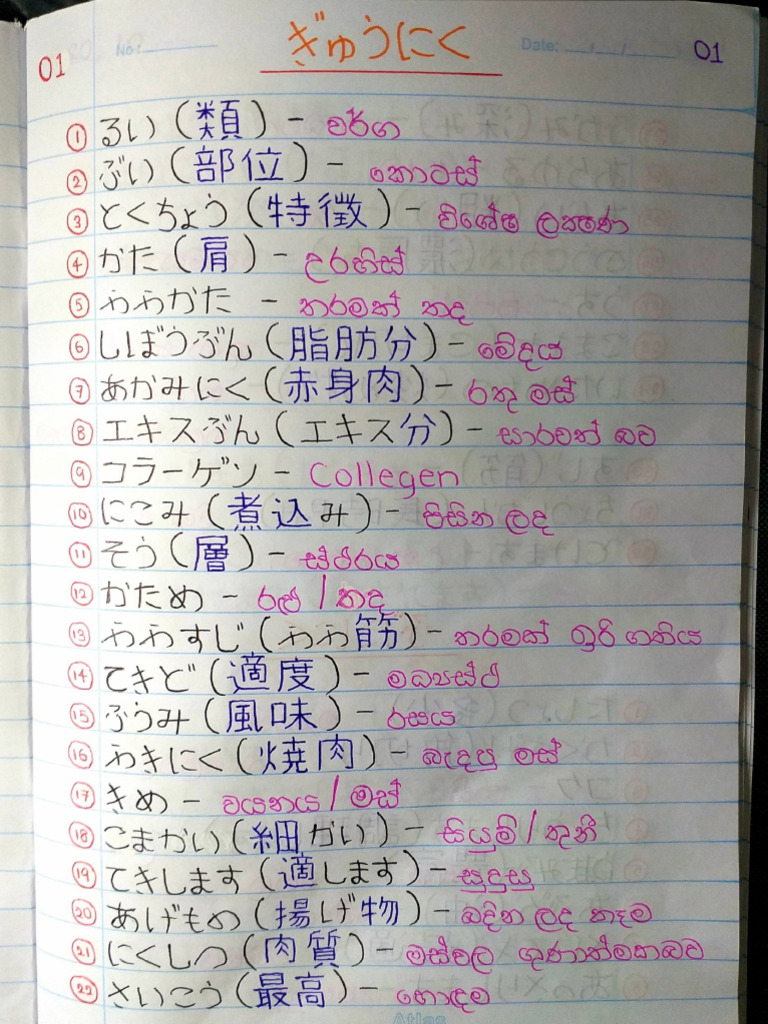 01 No: ぎゅうにく Date: 01
① るい (類) - වර්ග
② ぶい (部位) - කොටස්
③ とくちょう (特徴) - විශේෂ ලක්ෂණ
④ かた (肩) - උරහිස්
⑤ ややかた - තරමක් තද
⑥ しぼうぶん (脂肪分) - මේදය
⑦ あかみにく (赤身肉) - රතු මස්
⑧ エキスぶん (エキス分) - සාරමත් බව
⑨ コラーゲン - Collegen
⑩ にこみ (煮込み) - පිසින ලද
⑪ そう (層) - ස්ථරය
⑫ かため - රළු / තද
⑬ ややすじ (やや筋) - තරමක් ඉරි ගතිය
⑭ てきど (適度) - මධ්‍යස්ථ
⑮ ふうみ (風味) - රසය
⑯ やきにく (焼肉) - බැදපු මස්
⑰ きめ - වයනය / මස්
⑱ こまかい (細かい) - සියුම් / තුනී
⑲ てきします (適します) - සුදුසු
⑳ あげもの (揚げ物) - බදින ලද කෑම
㉑ にくしつ (肉質) - මස්වල ගුණාත්මකබව
㉒ さいこう (最高) - හොඳම
Atlas